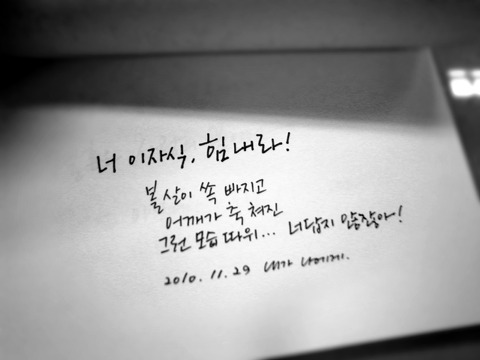 너 이자식, 힘내라!
볼살이 쏙 빠지고
어깨가 축 쳐진
그런 모습 따위... 너답지 않잖아!
2010. 11. 29 내가 나에게.